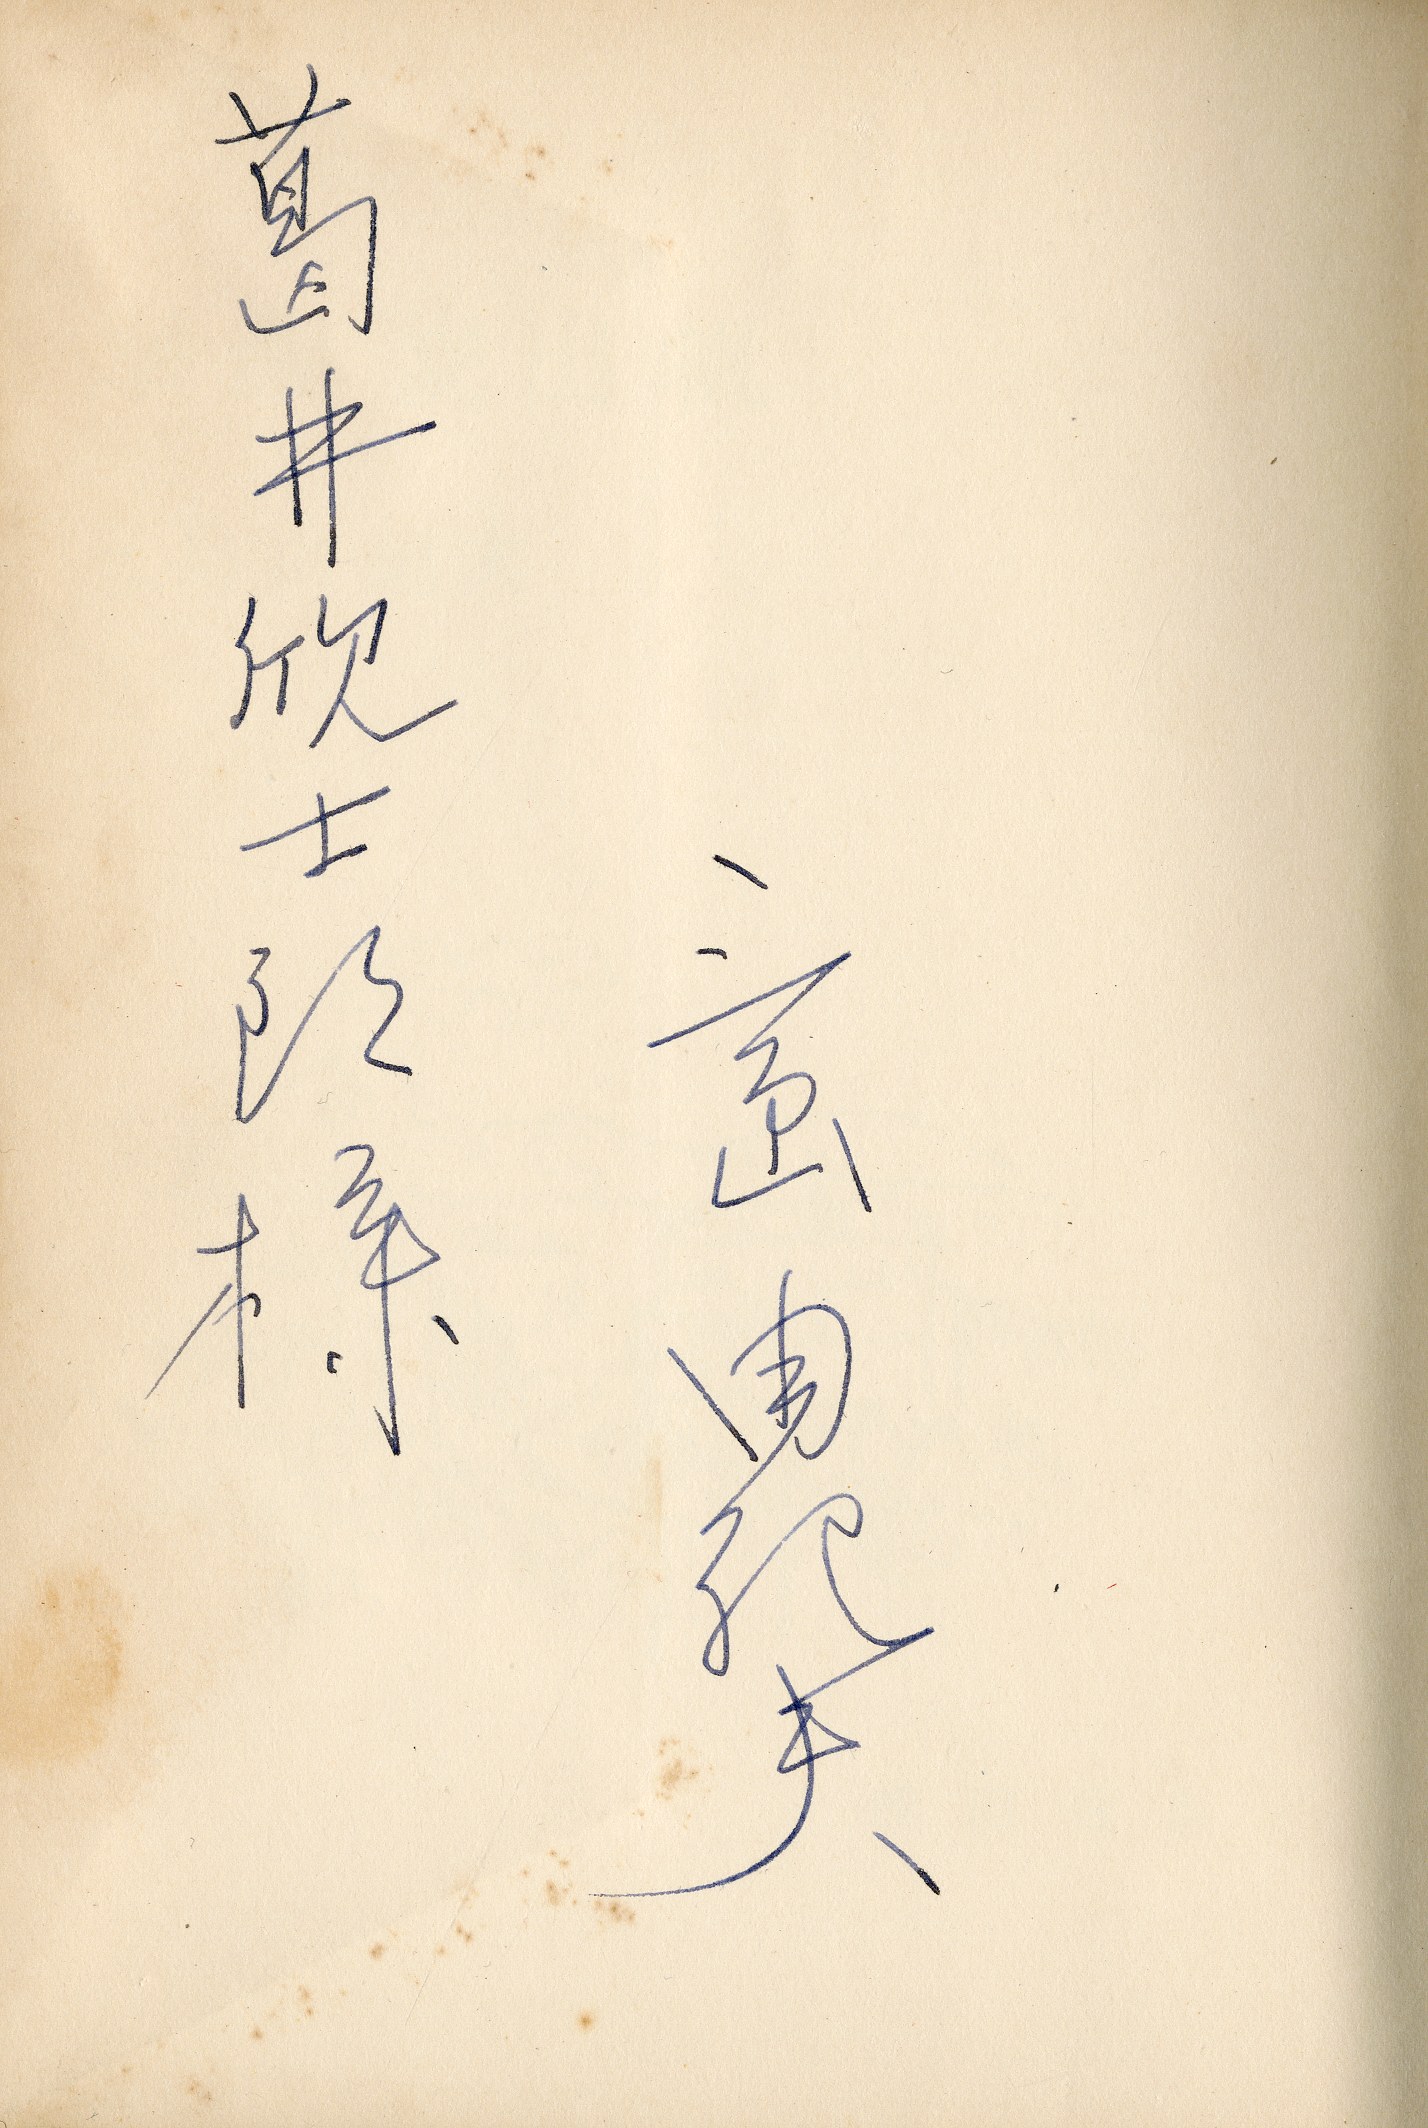 三島由紀夫
葛井欣士郎様